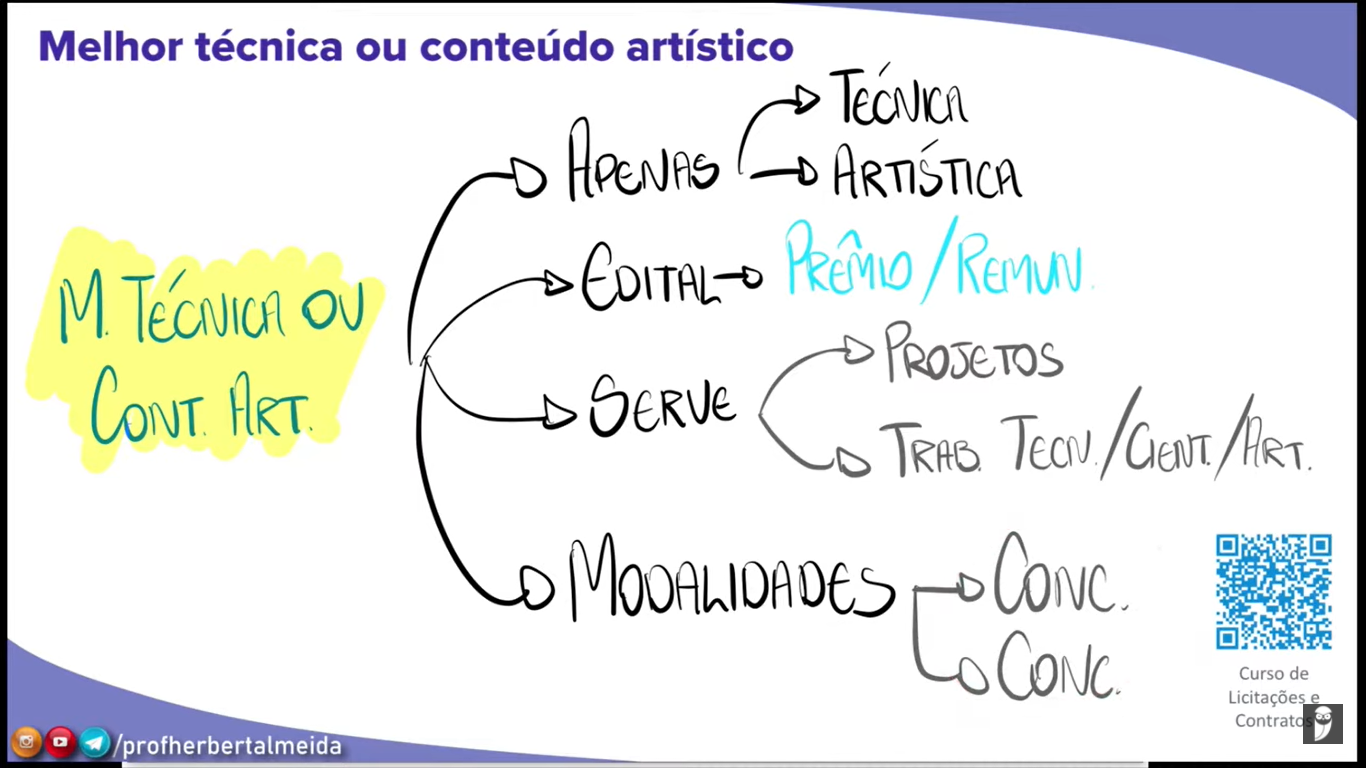 Melhor técnica ou conteúdo artístico
M. TÉCNICA OU
CONT. ART.
APENAS
TÉCNICA
ARTÍSTICA
EDITAL
PRÊMIO/REMUN.
SERVE
PROJETOS
TRAB. TECN./CIENT./ART.
MODALIDADES
CONC.
CONC.
Curso de
Licitações e
Contratos
/profherbertalmeida